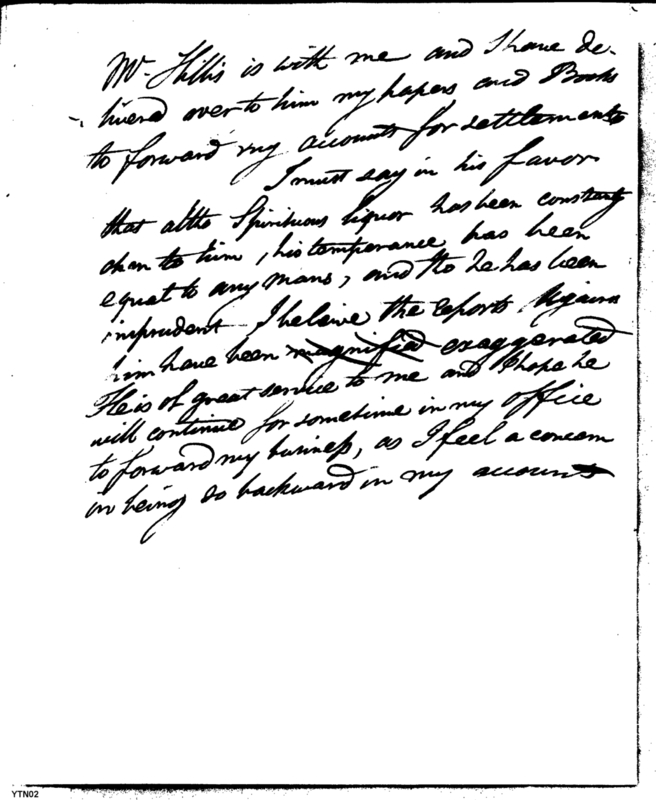 Mr. Hillis is with me and I have de-
livered over to him my papers and Books
to forward my accounts for settlements
I must say in his favor
that altho Spirituous liquor has been constantly
to him, his temperance has been
equal to any mans, and tho he has been
imprudent I beleive the reports Against
him have been magnified exaggerated
He is of great service to me and I hope he
will continue for sometime in my office
to forward my business, as I feel a concern
in being so backward in my accounts
YTN02